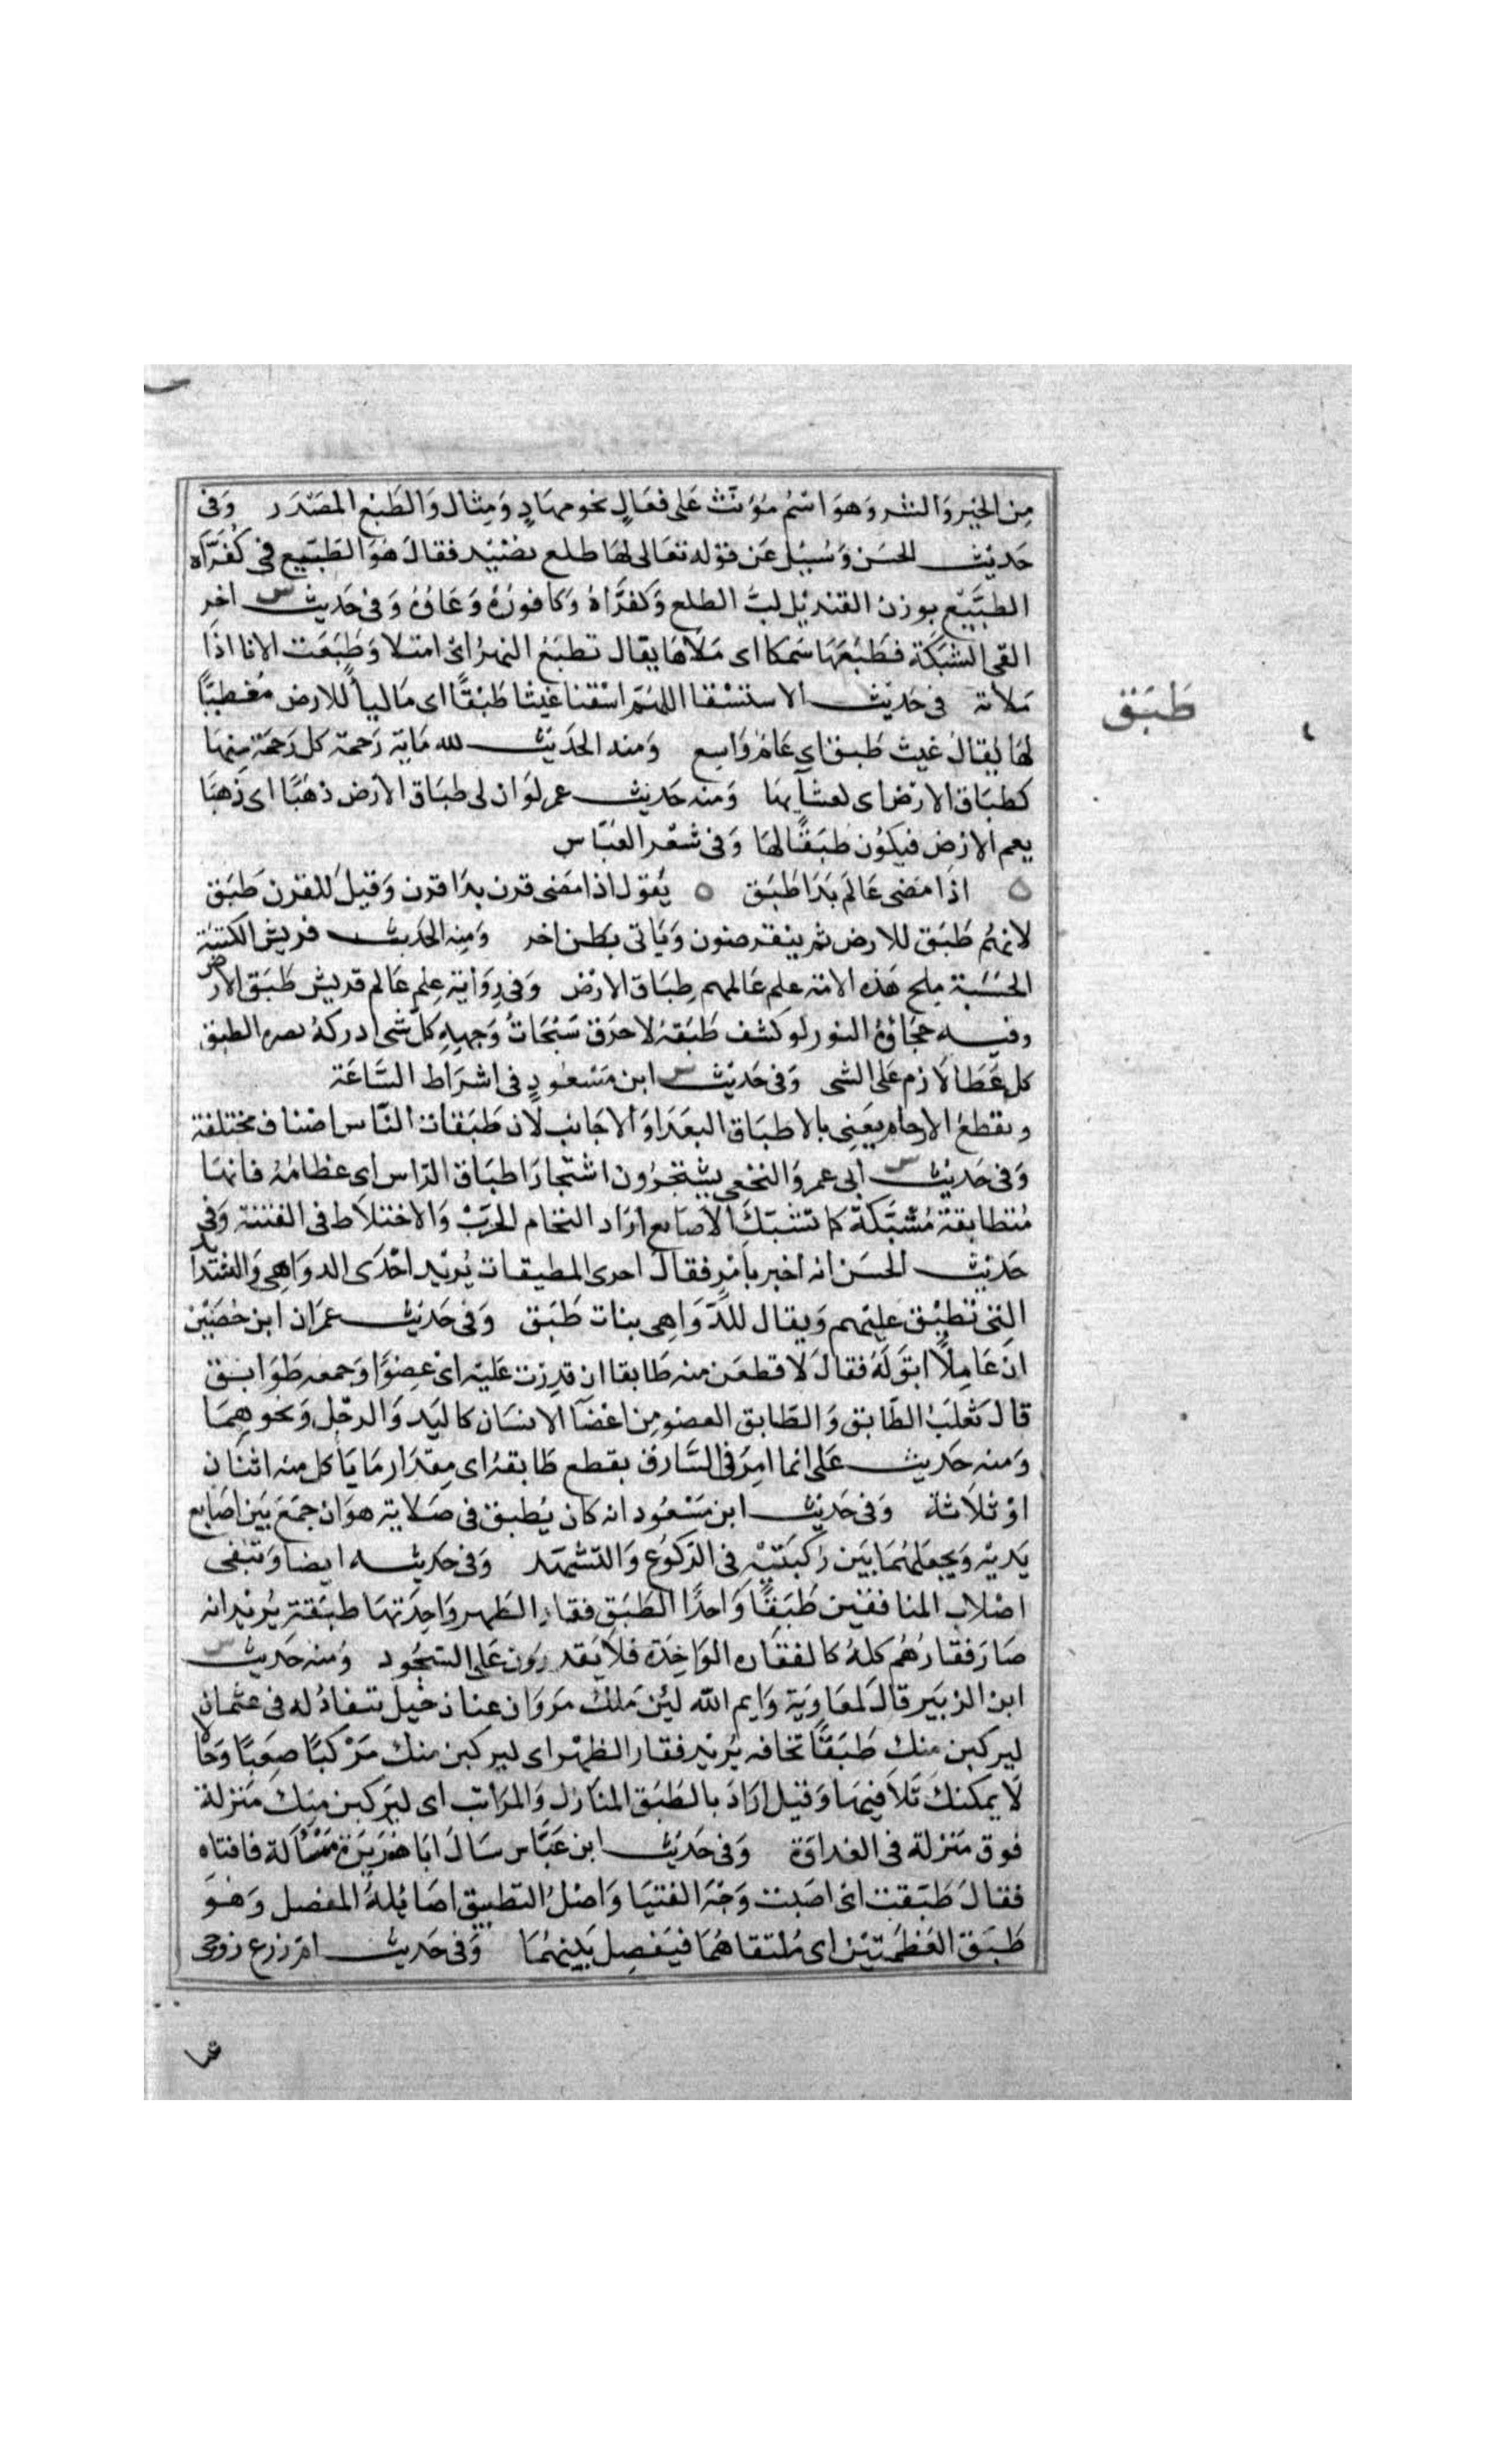 من الخير والشر وهو اسم مؤنث على فعال نحو مهاد ومثال والطبع المصدر وفى
حديث الحسن وسيل عن قوله تعالى لها طلع نضيد فقال هو الطبيع فى كفراه
الطبيع بوزن القنديل لب الطلع وكفراه وكافوره وعاوه وفى حديث س اخر
القى الشبكة فطبعها سمكا اى ملاها يقال تطبع النهر اى امتلا وطبعت الانا اذا
ملاته فى حديث الاستسقا اللهم اسقنا غيثا طبقا اى ماليا للارض مغطيا
طبق
لها يقال غيث طبق اى عام واسع ومنه الحديث لله ماية رحمة كل رحمة منها
كطباق الارض اى لغشايها ومنه حديث عمر لو ان لى طباق الارض ذهبا اى ذهبا
يعم الارض فيكون طبقا لها وفى شعر العباس
ه اذا مضى عالم بدا طبق ه يقول اذا مضى قرن بدا قرن وقيل للقرن طبق
لانهم طبق للارض ثم ينقرضون وياتى بطن اخر ومنه الحديث قريش الكتبة
الحسبة ملح هذه الامة علم عالمهم طباق الارض وفى رواية علم عالم قريش طبق الارض
وفيه حجابه النور لو كشف طبقه لاحرق سبحات وجهه كل شى ادركه بصره الطبق
كل غطا لازم على الشى وفى حديث س ابن مسعود فى اشراط الساعة
وتقطع الارحام يعنى بالاطباق البعدا والاجانب لان طبقات الناس اصناف مختلفة
وفى حديث س ابى عمرو النخعى يشتجرون اشتجار اطباق الراس اى عظامه فانها
متطابقة مشتبكة كما تشتبك الاصابع اراد التحام الحرب والاختلاط فى الفتنة وفى
حديث الحسن انه اخبر بامر فقال احدى المطبقات يريد احدى الدواهى والشدايد
التى تطبق عليهم ويقال للدواهى بنات طبق وفى حديث عمران ابن حصين
ان عاملا ابق له فقال لاقطعن منه طابقا ان قدرت عليه اى عضوا وجمعه طوابق
قال ثعلب الطابق والطابق العضو من اعضا الانسان كاليد والرجل ونحوهما
ومنه حديث على انما امر فى السارق بقطع طابقه اى مقدار ما ياكل منه اثنان
او ثلاثة وفى حديث ابن مسعود انه كان يطبق فى صلاته هو ان جمع بين اصابع
يديه ويجعلهما بين ركبتيه فى الركوع والتشهد وفى حديثه ايضا وتبقى
اصلاب المنافقين طبقا واحدا الطبق فقار الظهر واحدتها طبقة يريد انه
صار فقارهم كله كالفقاره الواحدة فلا يقدرون على السجود ومنه حديث س
ابن الزبير قال لمعاوية وايم الله لين ملك مروان عنان خيل تنقاد له فى عثمان
ليركبن منك طبقا تخافه يريد فقار الظهر اى ليركبن منك مركبا صعبا وحالا
لا يمكنك تلافيها وقيل اراد بالطبق المنازل والمراتب اى ليركبن منك منزلة
فوق منزلة فى العداوة وفى حديث ابن عباس سال ابا هريرة مسالة فافتاه
فقال طبقت اى اصبت وجه الفتيا واصل التطبيق اصابة المفصل وهو
طبق العظمتين اى ملتقاهما فيفصل بينهما وفى حديث ام زرع زوجى